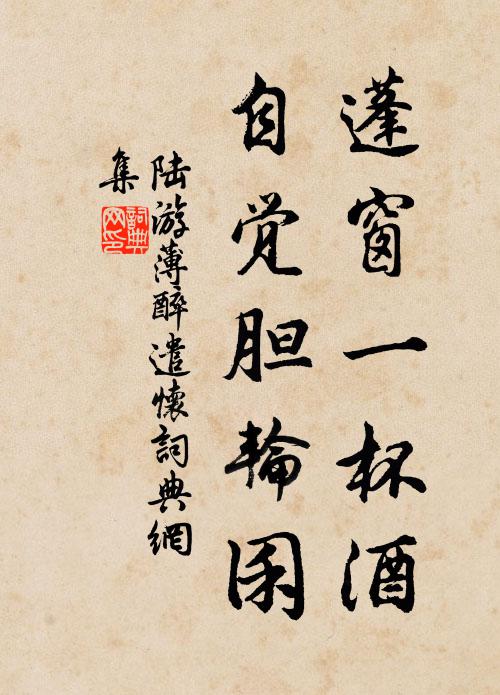 蓬窗一杯酒
自觉胆輪囷
陆游薄醉遣懷詞典網
集
詞典
网印